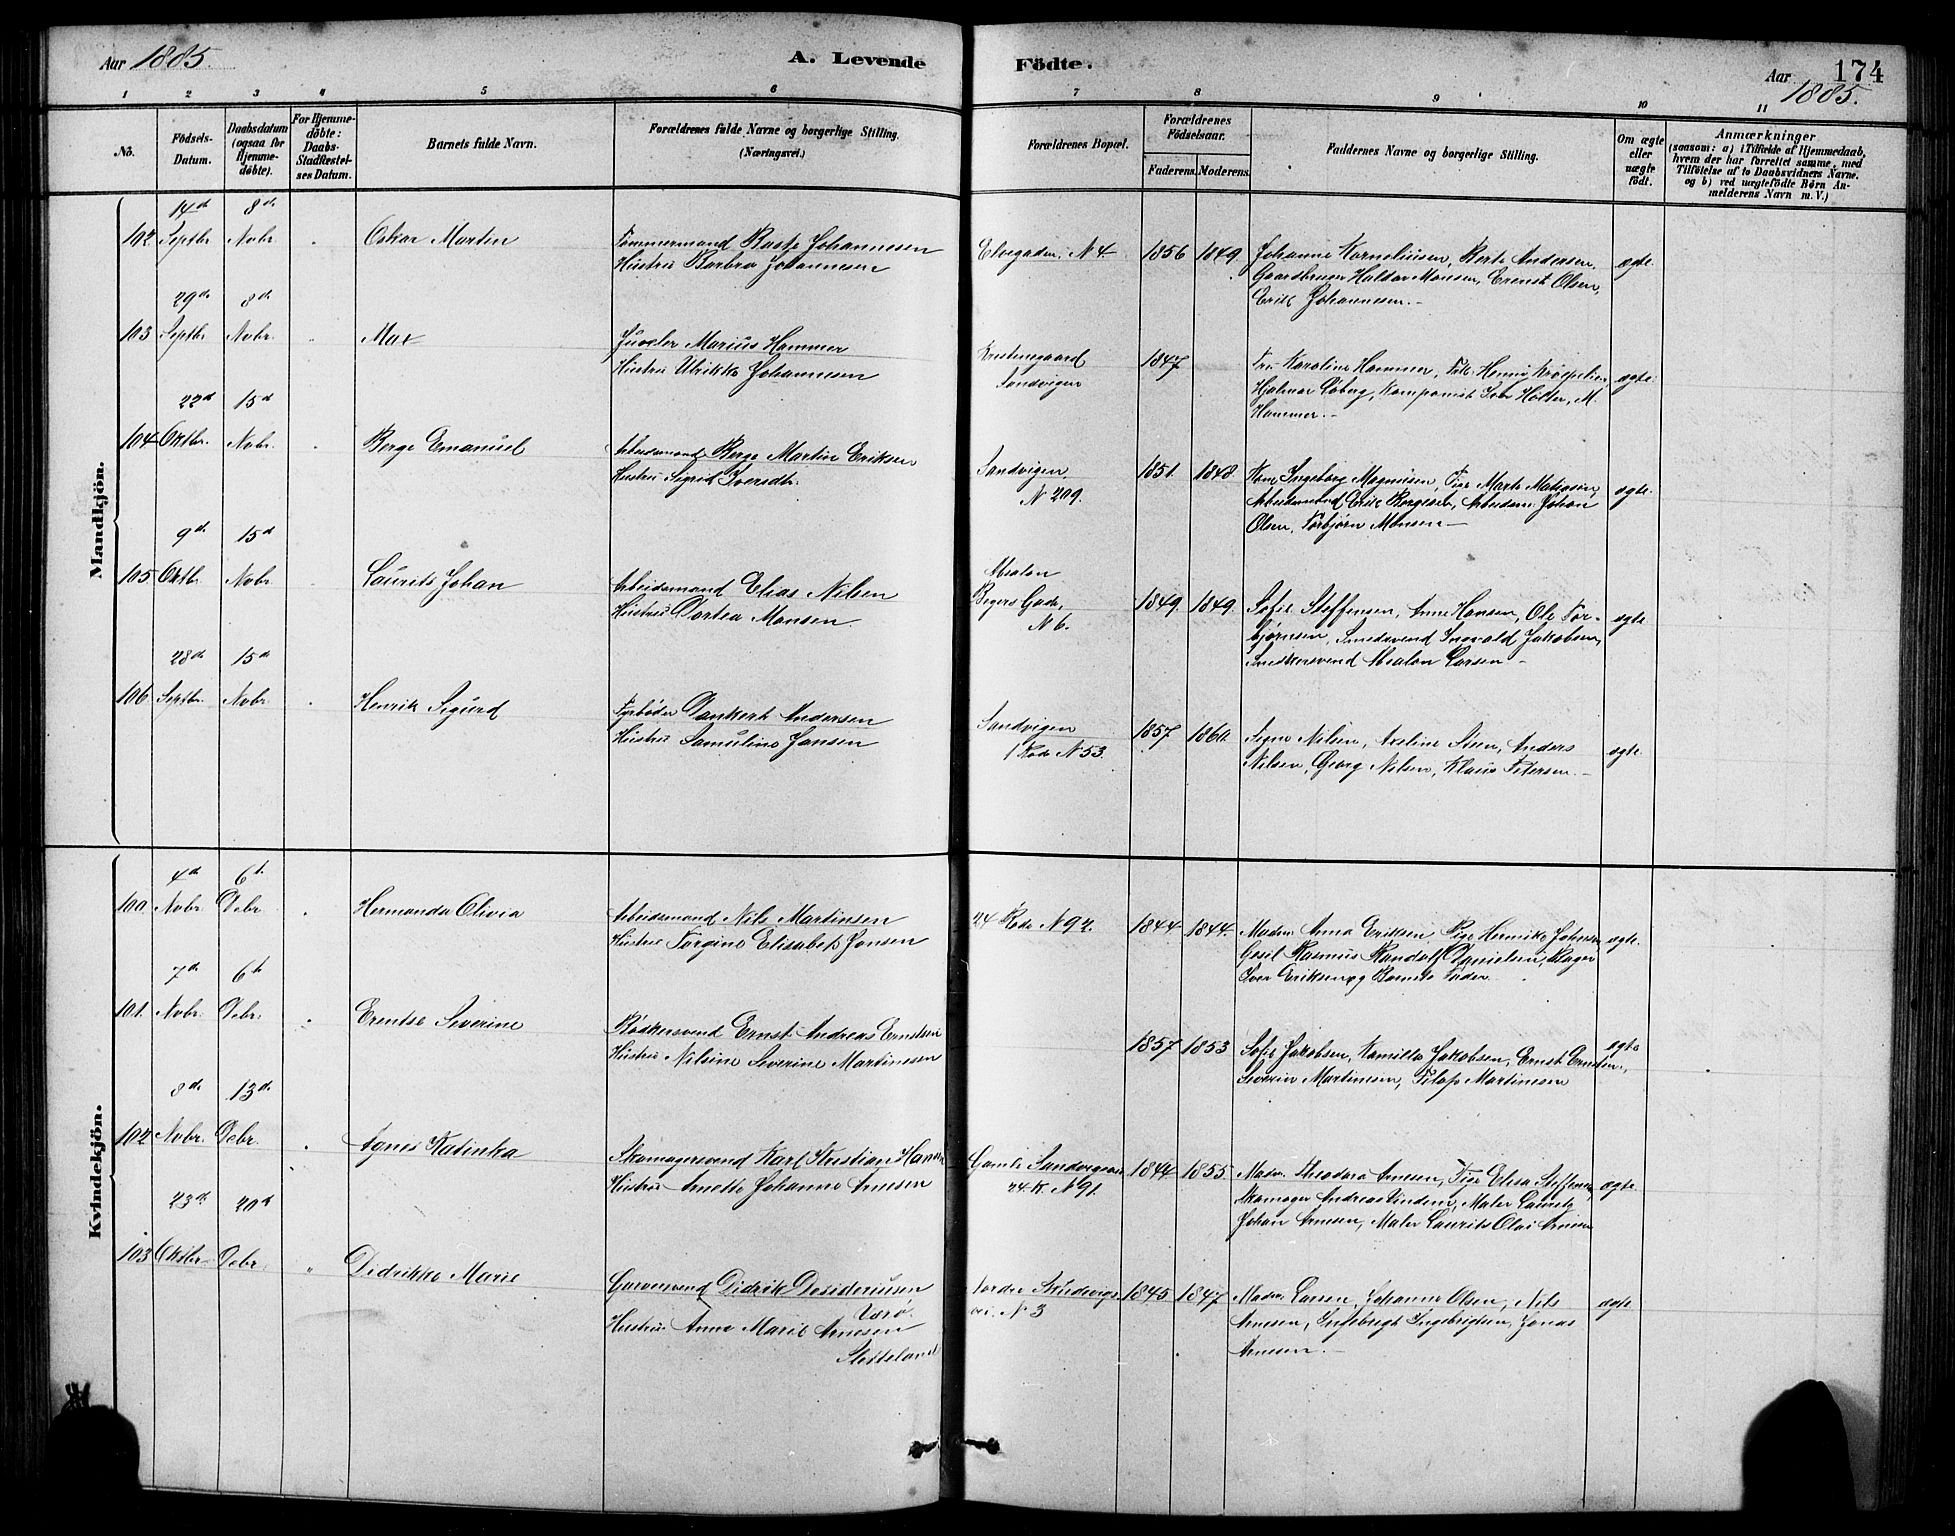 Aar 1885.
A. Levende
Födte.
Aar 1885.
174
1 2 3 4 5 6 7 8 9 10 11
No.
Födsels-Datum.
Daabsdatum (ogsaa for Hjemme-döbte).
For Hjemme-döbte: Daabs-Stadfæstel-ses Datum.
Barnets fulde Navn.
Forældrenes fulde Navne og borgerlige Stilling.
(Næringsvei.)
Forældrenes Bopæl.
Forældrenes Födselsaar.
Faderens. Moderens.
Faddernes Navne og borgerlige Stilling.
Om ægte eller uægte födt.
Anmærkninger
(saasom: a) i Tilfælde af Hjemmedaab,
hvem der har forrettet samme, med
Tilföielse af to Daabsvidners Navne.
og b) ved uægtefödte Börn An-
melderens Navn m. V.)
Mandkjön.
14d 8d
102 Septbr Novbr " Oskar Martin
Tömmermand Johannesen
Hustru Barbra Johannesen
Elvegaden N 4. 1856 1849.
Johanne Korneliusen, Berte Andersen,
Haldor Monsen, Erenst Olsen,
Erik Johannesen.—
ægte.
29de 8d
103 Septbr. Novbr. " Max
Juveler Marius Hammer
Hustru Ulrikke Johannesen
Kristinegaard
Sandvigen
1847
Fru Karoline Hammer, Frk. Henny
Hjalmar Löberg, Komponist Iver Holter, M.
Hammer.—
ægte.
22d 15d
104 Oktbr. Novbr. " Berge Emanuel
Arbeidsmand Berge Martin Eriksen
Hustru Sigrid Iversdtr.
Sandvigen
N 209.
1851. 1848.
Kone Ingeborg Magnusen, Pige Marte
Arbeidsmand Erik Borgesen, Arbeidsm. Johan
Olsen, Torbjörn Monsen—
ægte.
9d 15d
105 Oktbr. Novbr. " Laurits Johan
Arbeidsmand Elias Nilsen
Hustru Dortea Monsen
Absalon
Beyers Gade,
N 6.
1849. 1849.
Sofie Steffensen, Anne Hansen, Ole Tor-
björnsen, Smedsvend Ingvald Jakobsen,
Snedkersvend Absalon Larsen—
ægte
28de 15d
106 Septbr. Novbr. " Henrik Sigurd
Fyrböder Dankert Andersen
Hustru Samuline Jansen
Sandvigen
1 Rode N 53.
1857 1860.
Signe Nilsen, Axeline Steen, Anders
Nilsen, Georg Nilsen, Klaus Petersen.—
ægte.
Kvindekjön.
4d 6t
100 Novbr. Debr. " Hermanda Olivia
Arbeidsmand Nils Martinsen
Hustru Torgine Elisabet Jansen
24 Rode N 92. 1844 1844.
Madm. Anna Eriksen, Pige Henrikke Johnsen
Gesel Rasmus Randolf Danielsen, Bager
Iver Eriksen og Barnets Fader
ægte.
7d 6t
101. Novbr. Debr. " Erentse Severine
Bödkersvend Ernst Andreas Erntsen
Hustru Nilsine Severine Martinesen
1857 1853
Sofie Jakobsen, Kamilla Jakobsen, Ernst Erntsen,
Severin Martinesen, Martinesen
ægte
8de 13de
102 Novbr. Debr. " Agnes Katinka
Skomagersvend Karl Kristian Hansen
Hustru Anette Johanne Arnesen
Gamle Sandvigsvei
24. R. N 91.
1844 1855.
Madm. Theodora Arnesen, Pige Elisa Steffensen,
Skomager Andreas Vindenes, Maler Lauritz
Johan Arnesen, Maler Laurits Olai Arnesen
ægte.
23d. 20d
103 Oktbr. Debr. " Didrikke Marie
Garversvend Didrik Desideriussen
Værö
Hustru Anne Marie Arnesen
Sletteland
Nordre Skudevigs-
vei. N 3
1845 1847
Madm. Larsen, Johanne Olsen, Nils
Arnesen, Ingebrigt Ingebrigtsen, Jonas
Arnesen.—
ægte